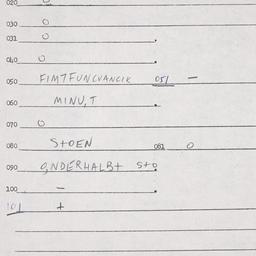 020
030 O
031 O
040 O
050 FIMTFUNCVANCIK 051 –
060 MINU,T
070 O
080 STOEN 081 O
090 ONDERHALBT STO
100 –
101 +